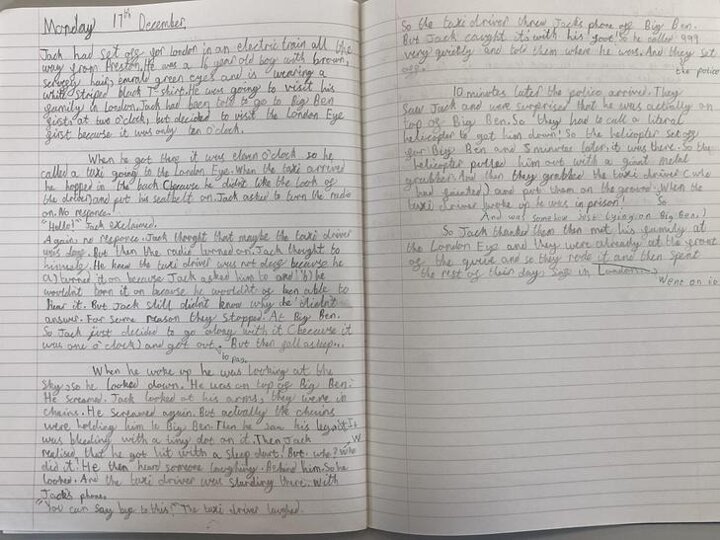 Monday 17th December.
Jack had set off for London in an electric train all the
way from Preston. He was a 16 year old boy with brown,
scruffy hair, emerald green eyes and is wearing a
white striped black T-shirt. He was going to visit his
family in London. Jack had been told to go to Big Ben
first, at two o'clock, but decided to visit the London Eye
first because it was only ten o'clock.
When he got there it was eleven o'clock so he
called a taxi going to the London Eye. When the taxi arrived
he hopped in the back (because he didn't like the look of
the driver) and put his seatbelt on. Jack asked to turn the radio
on. No responce!
"Hello!" Jack exclaimed.
Again no responce. Jack thought that maybe the taxi driver
was deaf. But then the radio turned on. Jack thought to
himself. He knew the taxi driver was not deaf because he
a) turned it on because Jack asked him to and b) he
wouldn't turn it on because he wouldn't of been able to
hear it. But Jack still didn't know why he didn't
answer. For some reason they stopped. At Big Ben.
So Jack just decided to go along with it (because it
was one o'clock) and got out. But then fell asleep...
to pay.
When he woke up he was looking at the
sky, so he looked down. He was on top of Big Ben.
He screamed. Jack looked at his arms, they were in
chains. He screamed again. But actually the chains
were holding him to Big Ben. Then he saw his leg. It
was bleeding with a tiny dot on it. Then Jack
realised that he got hit with a sleep dart! But who? Who
did it! He then heard someone laughing. Behind him. So he
looked. And the taxi driver was standing there. With
Jack's phone.
"You can say bye to this!" The taxi driver laughed.
So the taxi driver threw Jack's phone off Big Ben.
But Jack caught it with his foot. So he called 999
very quietly and told them where he was. And they set
off.
the police
10 minutes later the police arrived. They
saw Jack and were surprised that he was actually on
top of Big Ben. So they had to call a literal
helicopter to get him down! So the helicopter set off
for Big Ben and 5 minutes later, it was there. So the
helicopter pulled him out with a giant metal
grabber. And then they grabbed the taxi driver (who
had fainted) and put them on the ground. When the
taxi driver woke up he was in prison! So
And was somehow just lying on Big Ben.)
So Jack thanked them then met his family at
the London Eye and they were already at the front
of the queue and so they rode it and then spent
the rest of their day in London.
Went on it